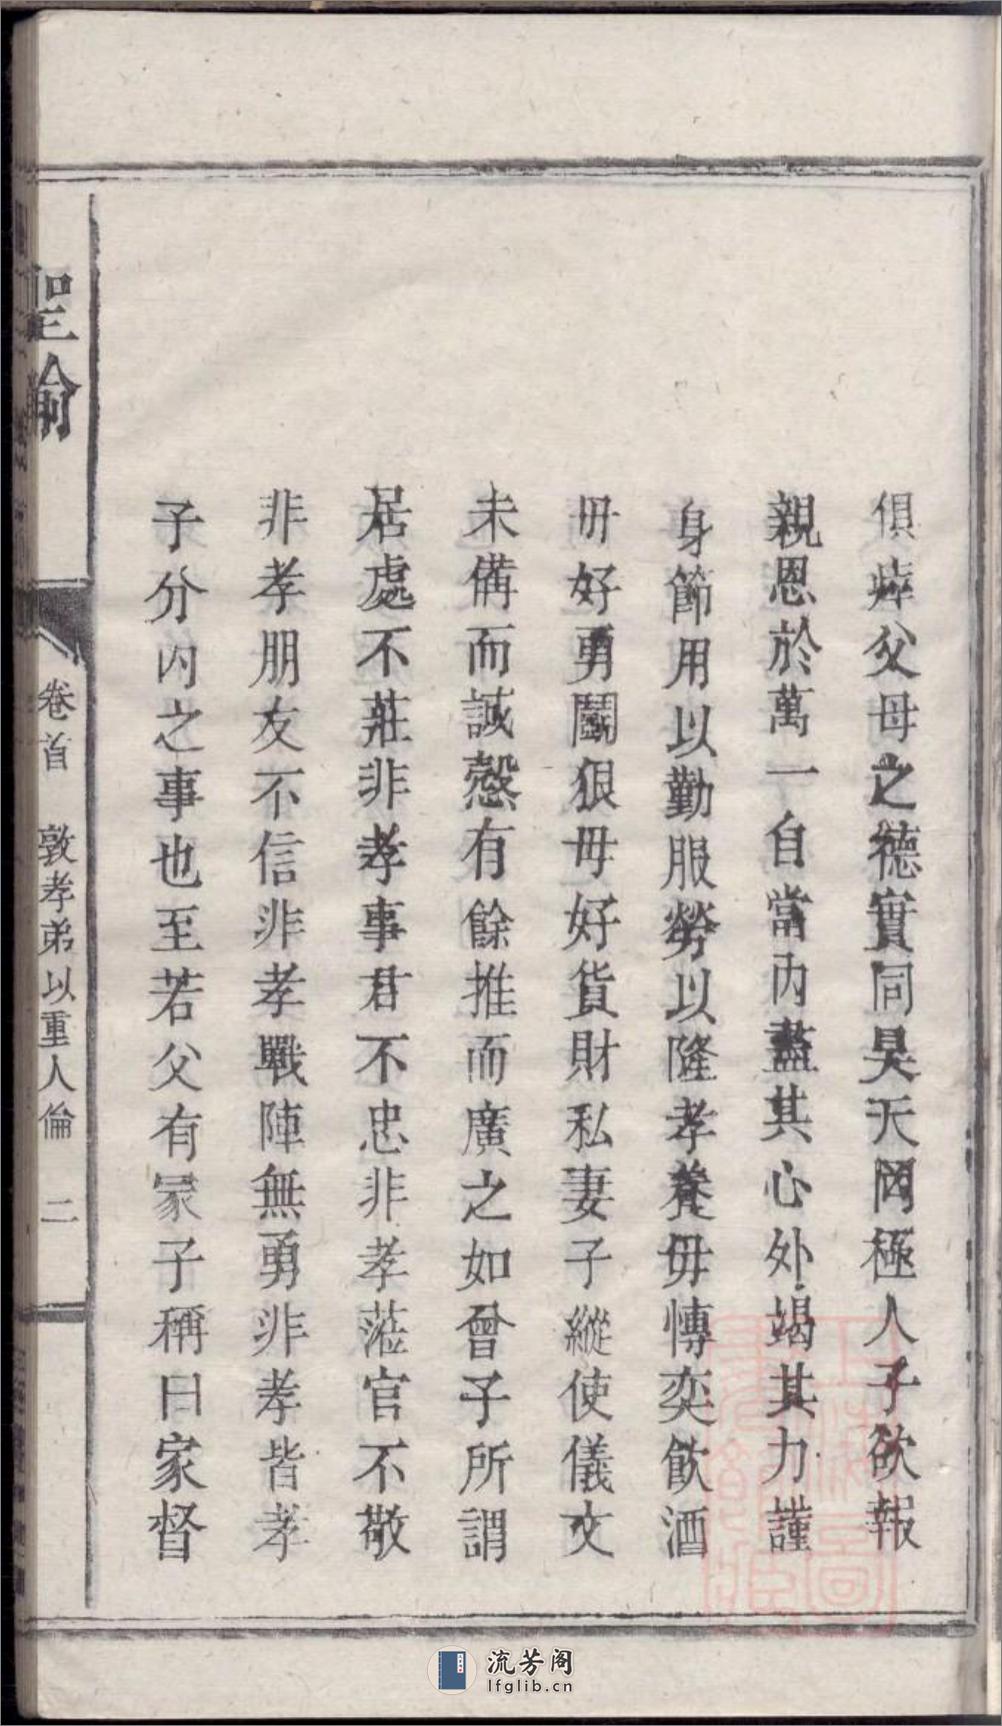 俱瘁父母之德實同昊天罔極人子欲報
親恩於萬一自當內盡其心外竭其力謹
身節用以勤服勞以隆孝養毋慱奕飲酒
毋好勇鬭狠毋好貨財私妻子縱使儀文
未備而誠慤有餘推而廣之如曾子所謂
居處不莊非孝事君不忠非孝蒞官不敬
非孝朋友不信非孝戰陣無勇非孝皆孝
子分內之事也至若父有冡子稱曰家督
聖諭
卷首 敦孝弟以重人倫 二
流芳阁
lfglib.cn